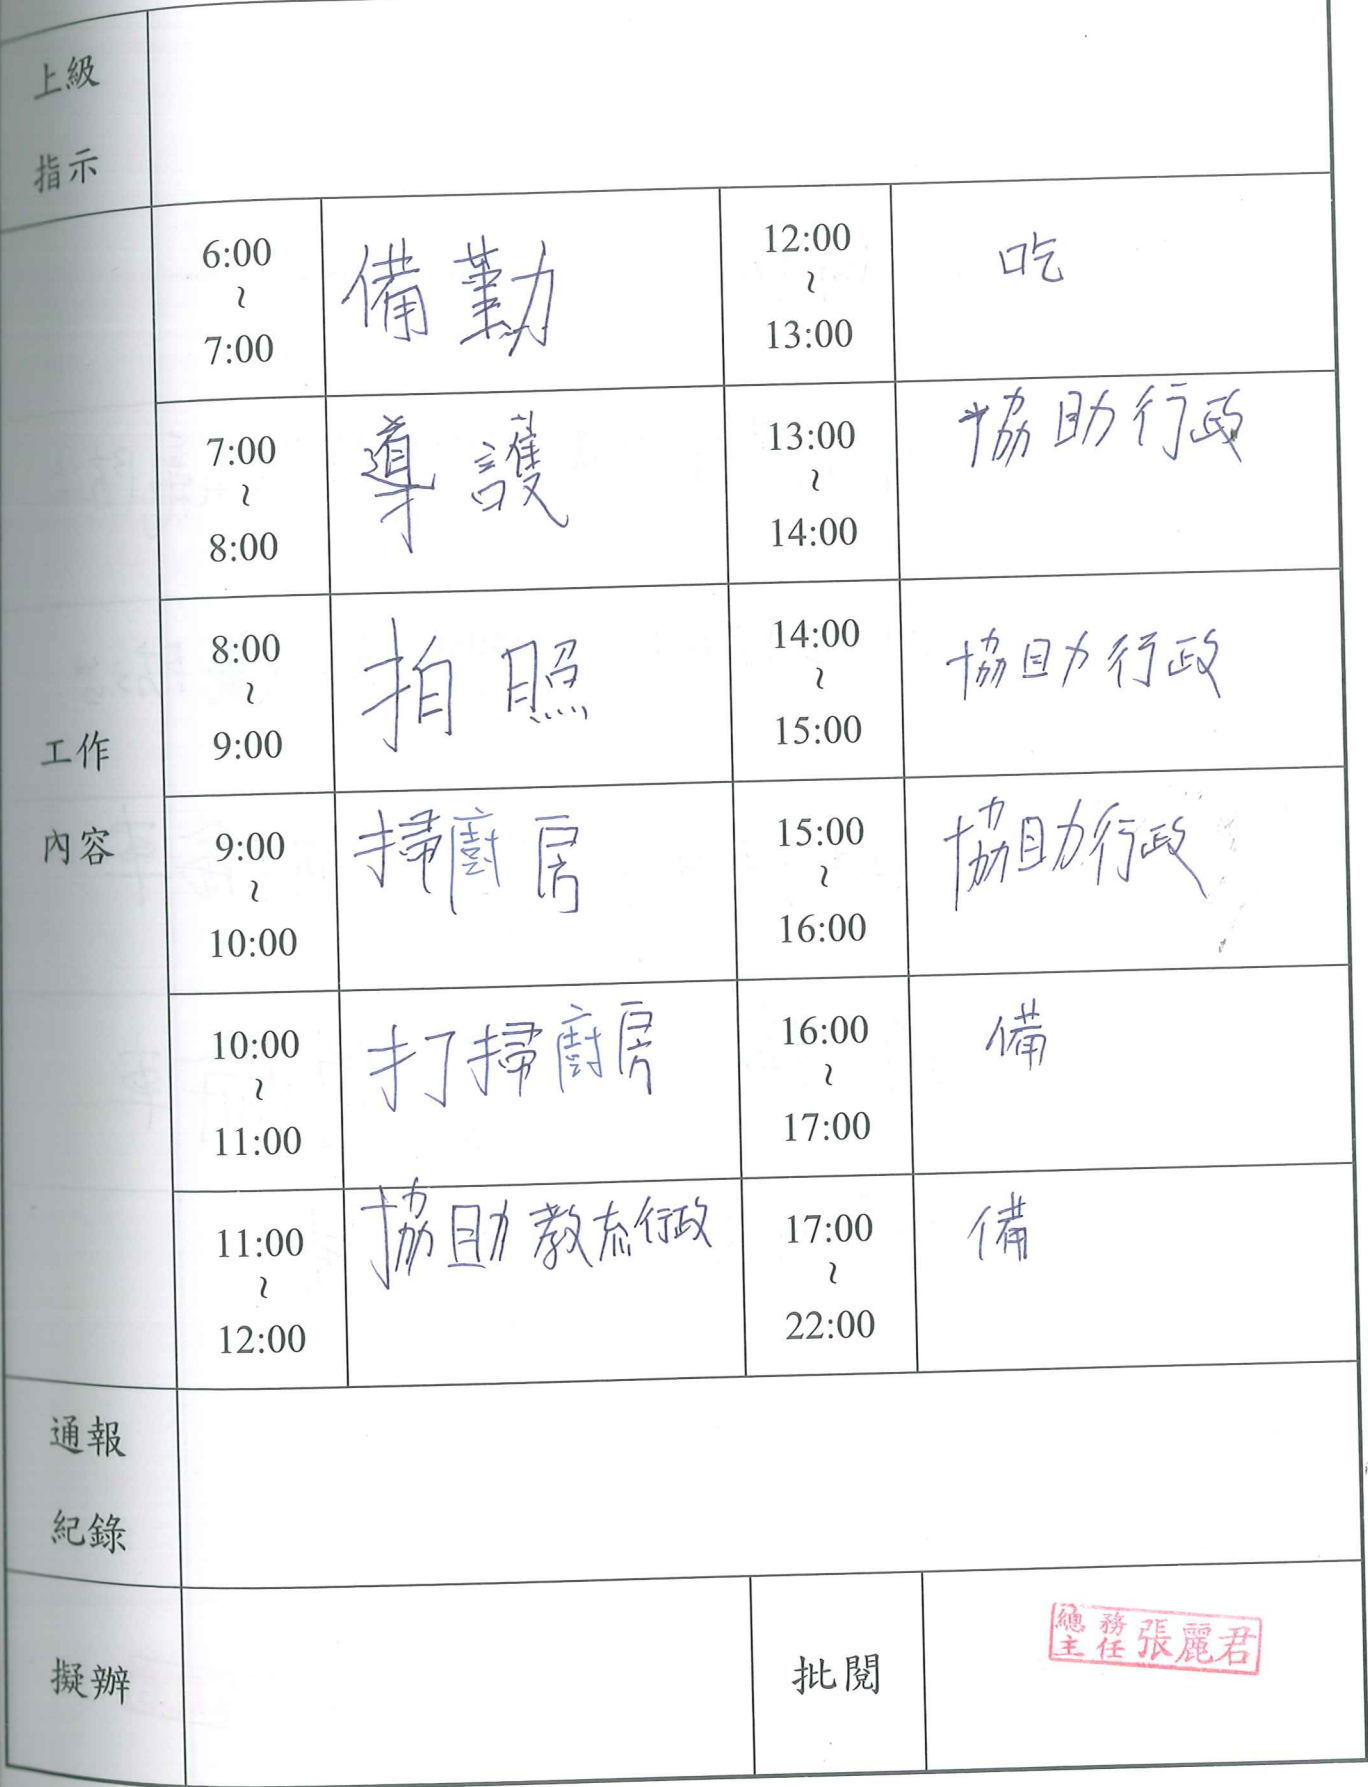 上級
指示
6:00
~
7:00
備勤
12:00
~
13:00
吃
7:00
~
8:00
導護
13:00
~
14:00
協助行政
8:00
~
9:00
拍照
14:00
~
15:00
協助行政
工作
內容
9:00
~
10:00
掃廚房
15:00
~
16:00
協助行政
10:00
~
11:00
打掃廚房
16:00
~
17:00
備
11:00
~
12:00
協助教 行政
17:00
~
22:00
備
通報
紀錄
擬辦
批閱
總務
主任 張麗君